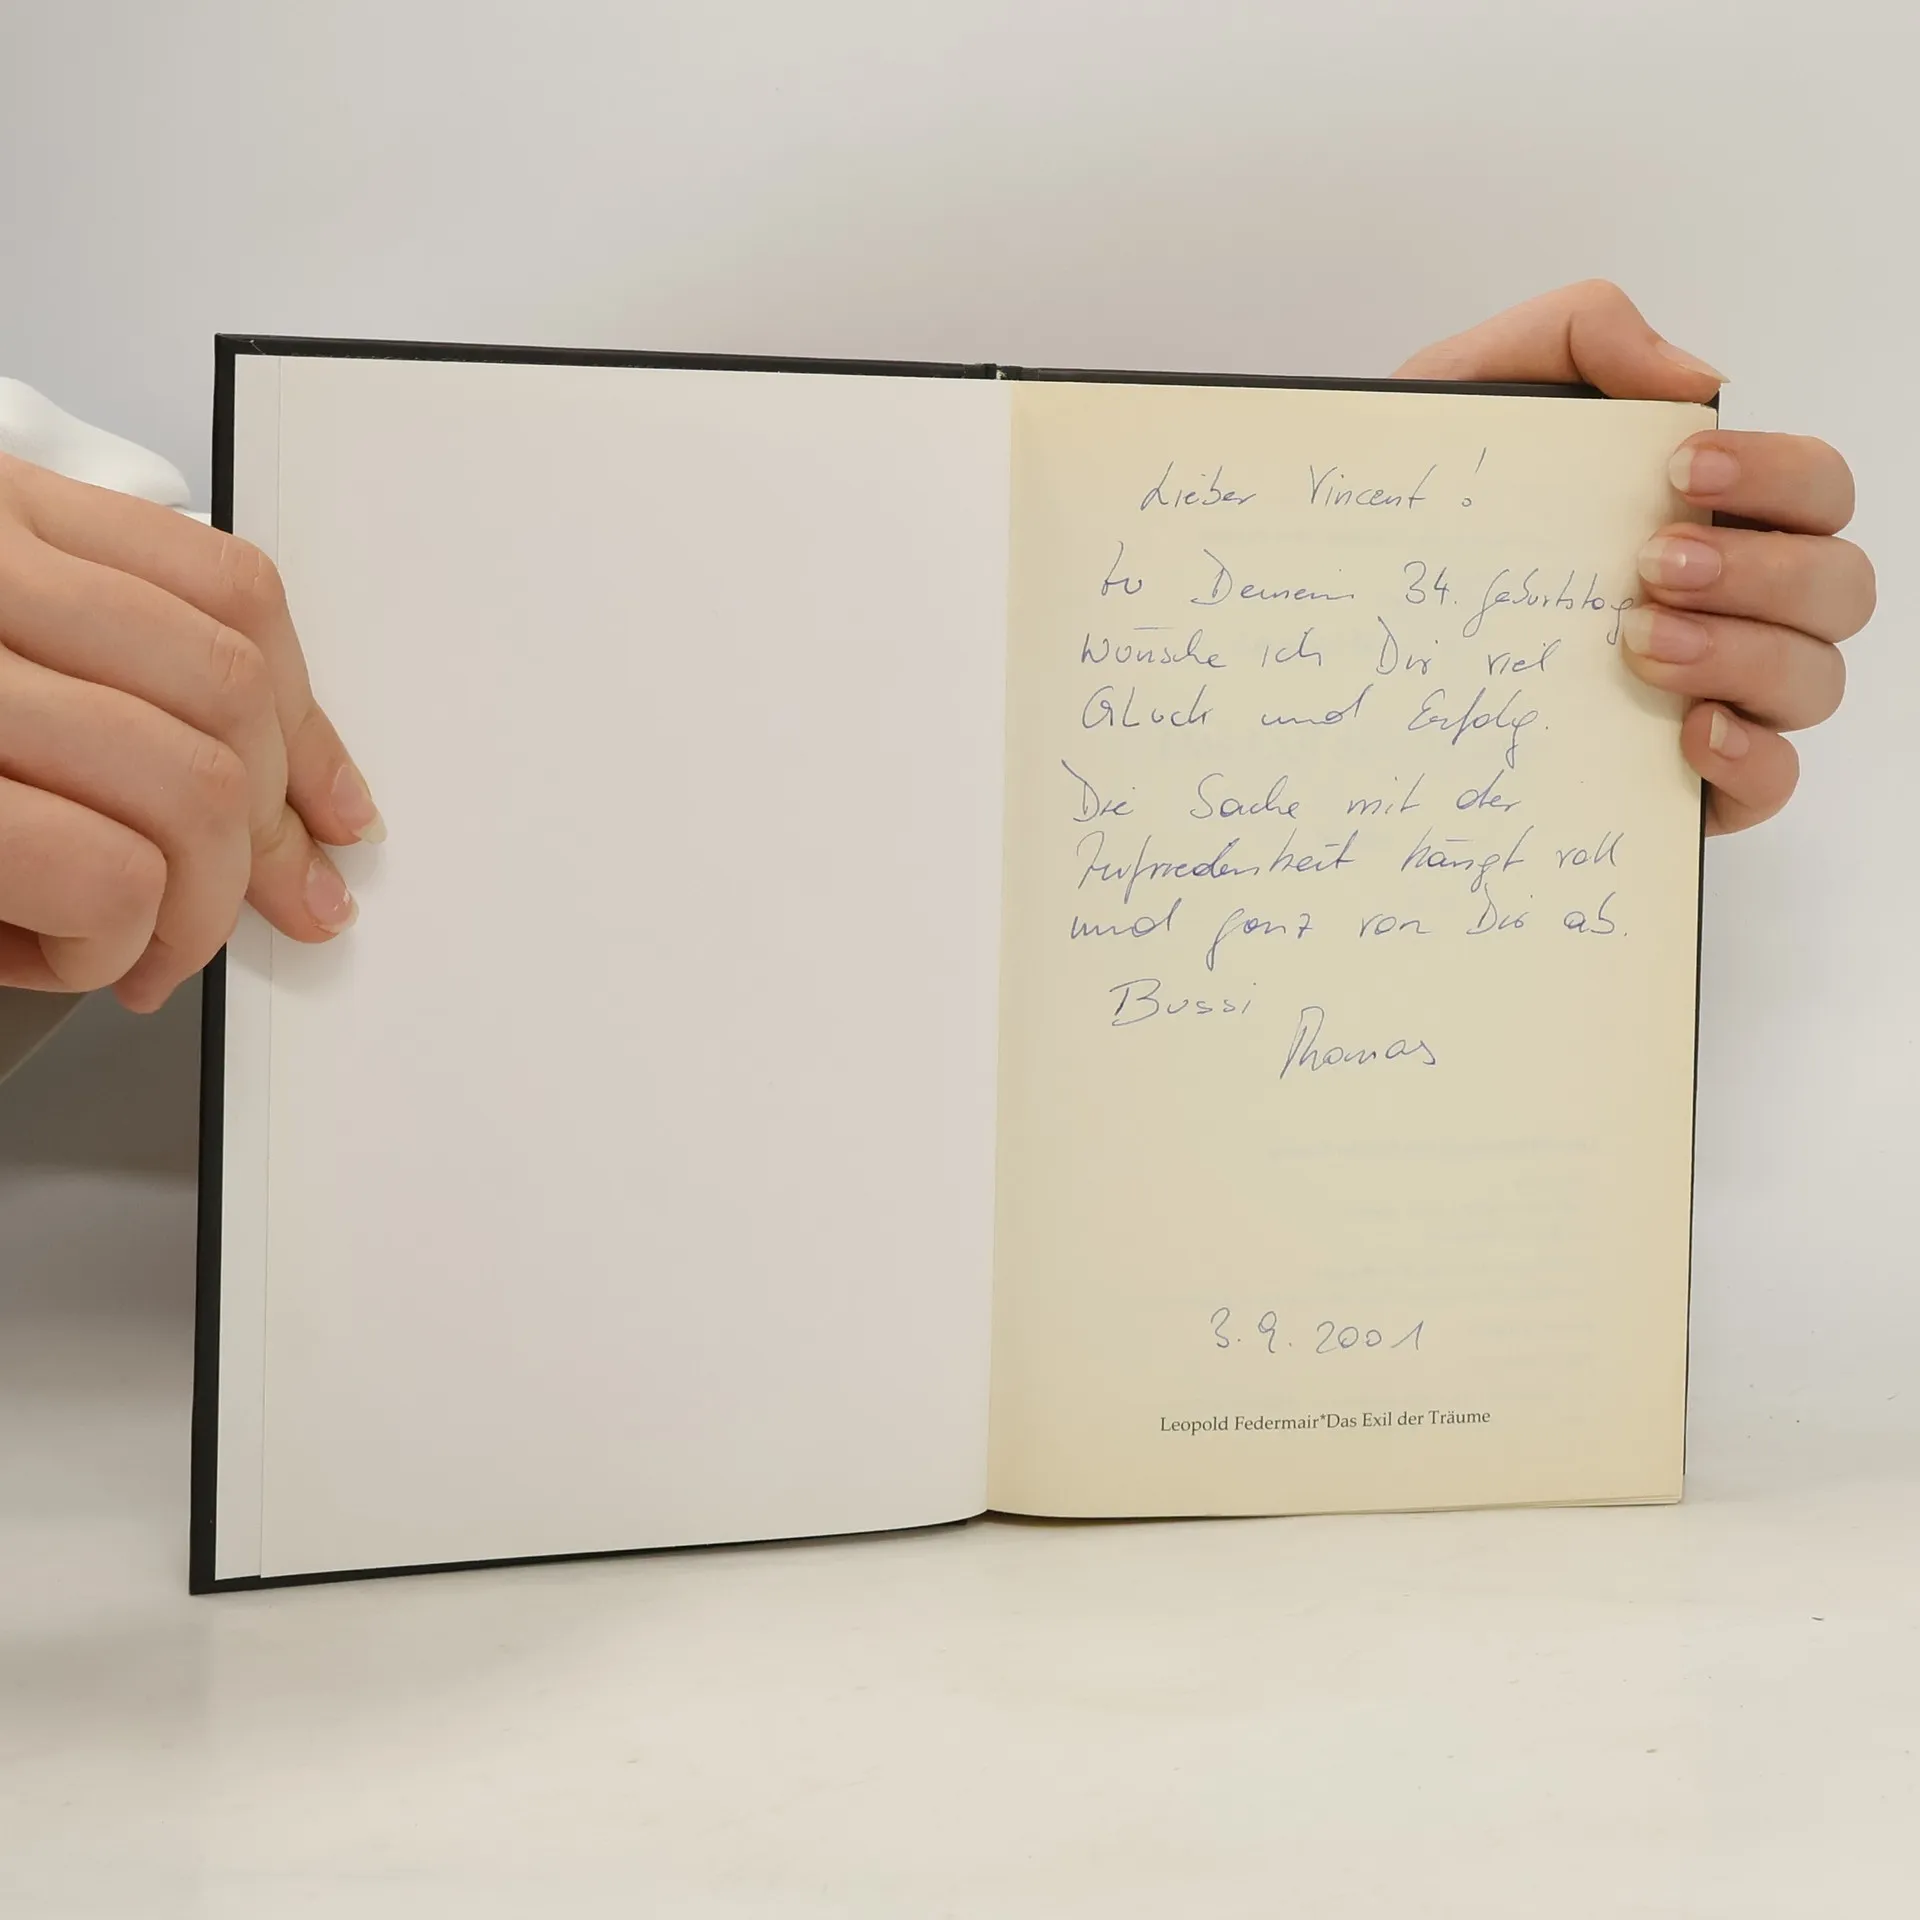 Lieber Vincent!
Zu Deinem 34. Geburtstag
wünsche ich Dir viel
Glück und Erfolg.
Die Sache mit der
Zufriedenheit hängt voll
und ganz von Dir ab.
Bussi
Thomas
3.9.2001
Leopold Federmair*Das Exil der Träume